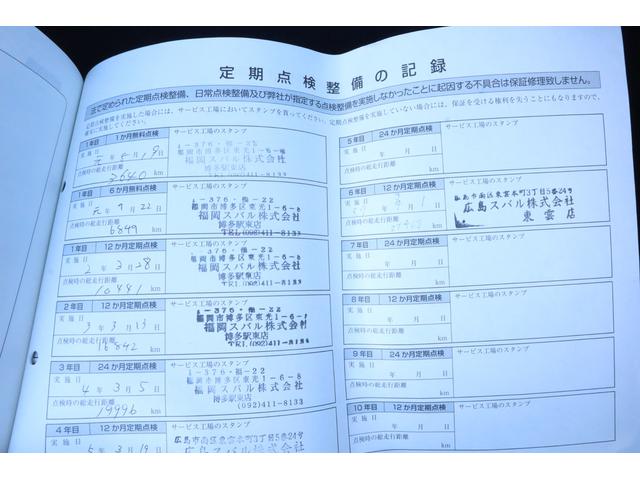 定期点検整備の記録
法で定められた定期点検整備、日常点検整備及び弊社が指定する点検整備を実施しなかったことに起因する不具合は保証修理致しません。
定期点検整備を実施した場合には、サービス工場においてスタンプを貰ってください。定期点検整備を実施していない場合には、保証を受ける権利を失うことにもなりますので、
確実に実施してください。
1年目 1か月無料点検 サービス工場のスタンプ
実施日 月 19日
点検時の総走行距離
2640 km
福岡市博多区東光1-6-8
福岡スバル株式会社
博多駅東店
1年目 6か月無料点検 サービス工場のスタンプ
実施日 元年 9月 22日
点検時の総走行距離
6849 km
1-376・福-22
福岡市博多区東光1-6-8
福岡スバル株式会社
博多駅東店
TEL(092)411-8133
1年目 12か月定期点検 サービス工場のスタンプ
実施日 2年 3月 28日
点検時の総走行距離
10441 km
376・福-22
福岡市博多区東光1-6-8
福岡スバル株式会社
博多駅東店
2年目 12か月定期点検 サービス工場のスタンプ
実施日 3年 3月 13日
点検時の総走行距離
16842 km
1-376・福-22
福岡市博多区東光1-6-8
福岡スバル株式会社
博多駅東店
3年目 24か月定期点検 サービス工場のスタンプ
実施日 4年 3月 5日
点検時の総走行距離
19996 km
1-376・福-22
福岡市博多区東光1-6-8
福岡スバル株式会社
博多駅東店
(092)411-8133
4年目 12か月定期点検 サービス工場のスタンプ
実施日 5年 3月 19日
広島市南区東雲本町3丁目5番24号
広島スバル株式会社
5年目 24か月定期点検 サービス工場のスタンプ
実施日 年 月 日
点検時の総走行距離
km
6年目 12か月定期点検 サービス工場のスタンプ
実施日
点検時の総走行距離
km
広島市南区東雲本町3丁目5番24号
広島スバル株式会社
東雲店
7年目 24か月定期点検 サービス工場のスタンプ
実施日 年 月 日
点検時の総走行距離
km
8年目 12か月定期点検 サービス工場のスタンプ
実施日 年 月 日
点検時の総走行距離
km
9年目 24か月定期点検 サービス工場のスタンプ
実施日 年 月 日
点検時の総走行距離
km
10年目 12か月定期点検 サービス工場のスタンプ
実施日 年 月 日
点検時の総走行距離
km